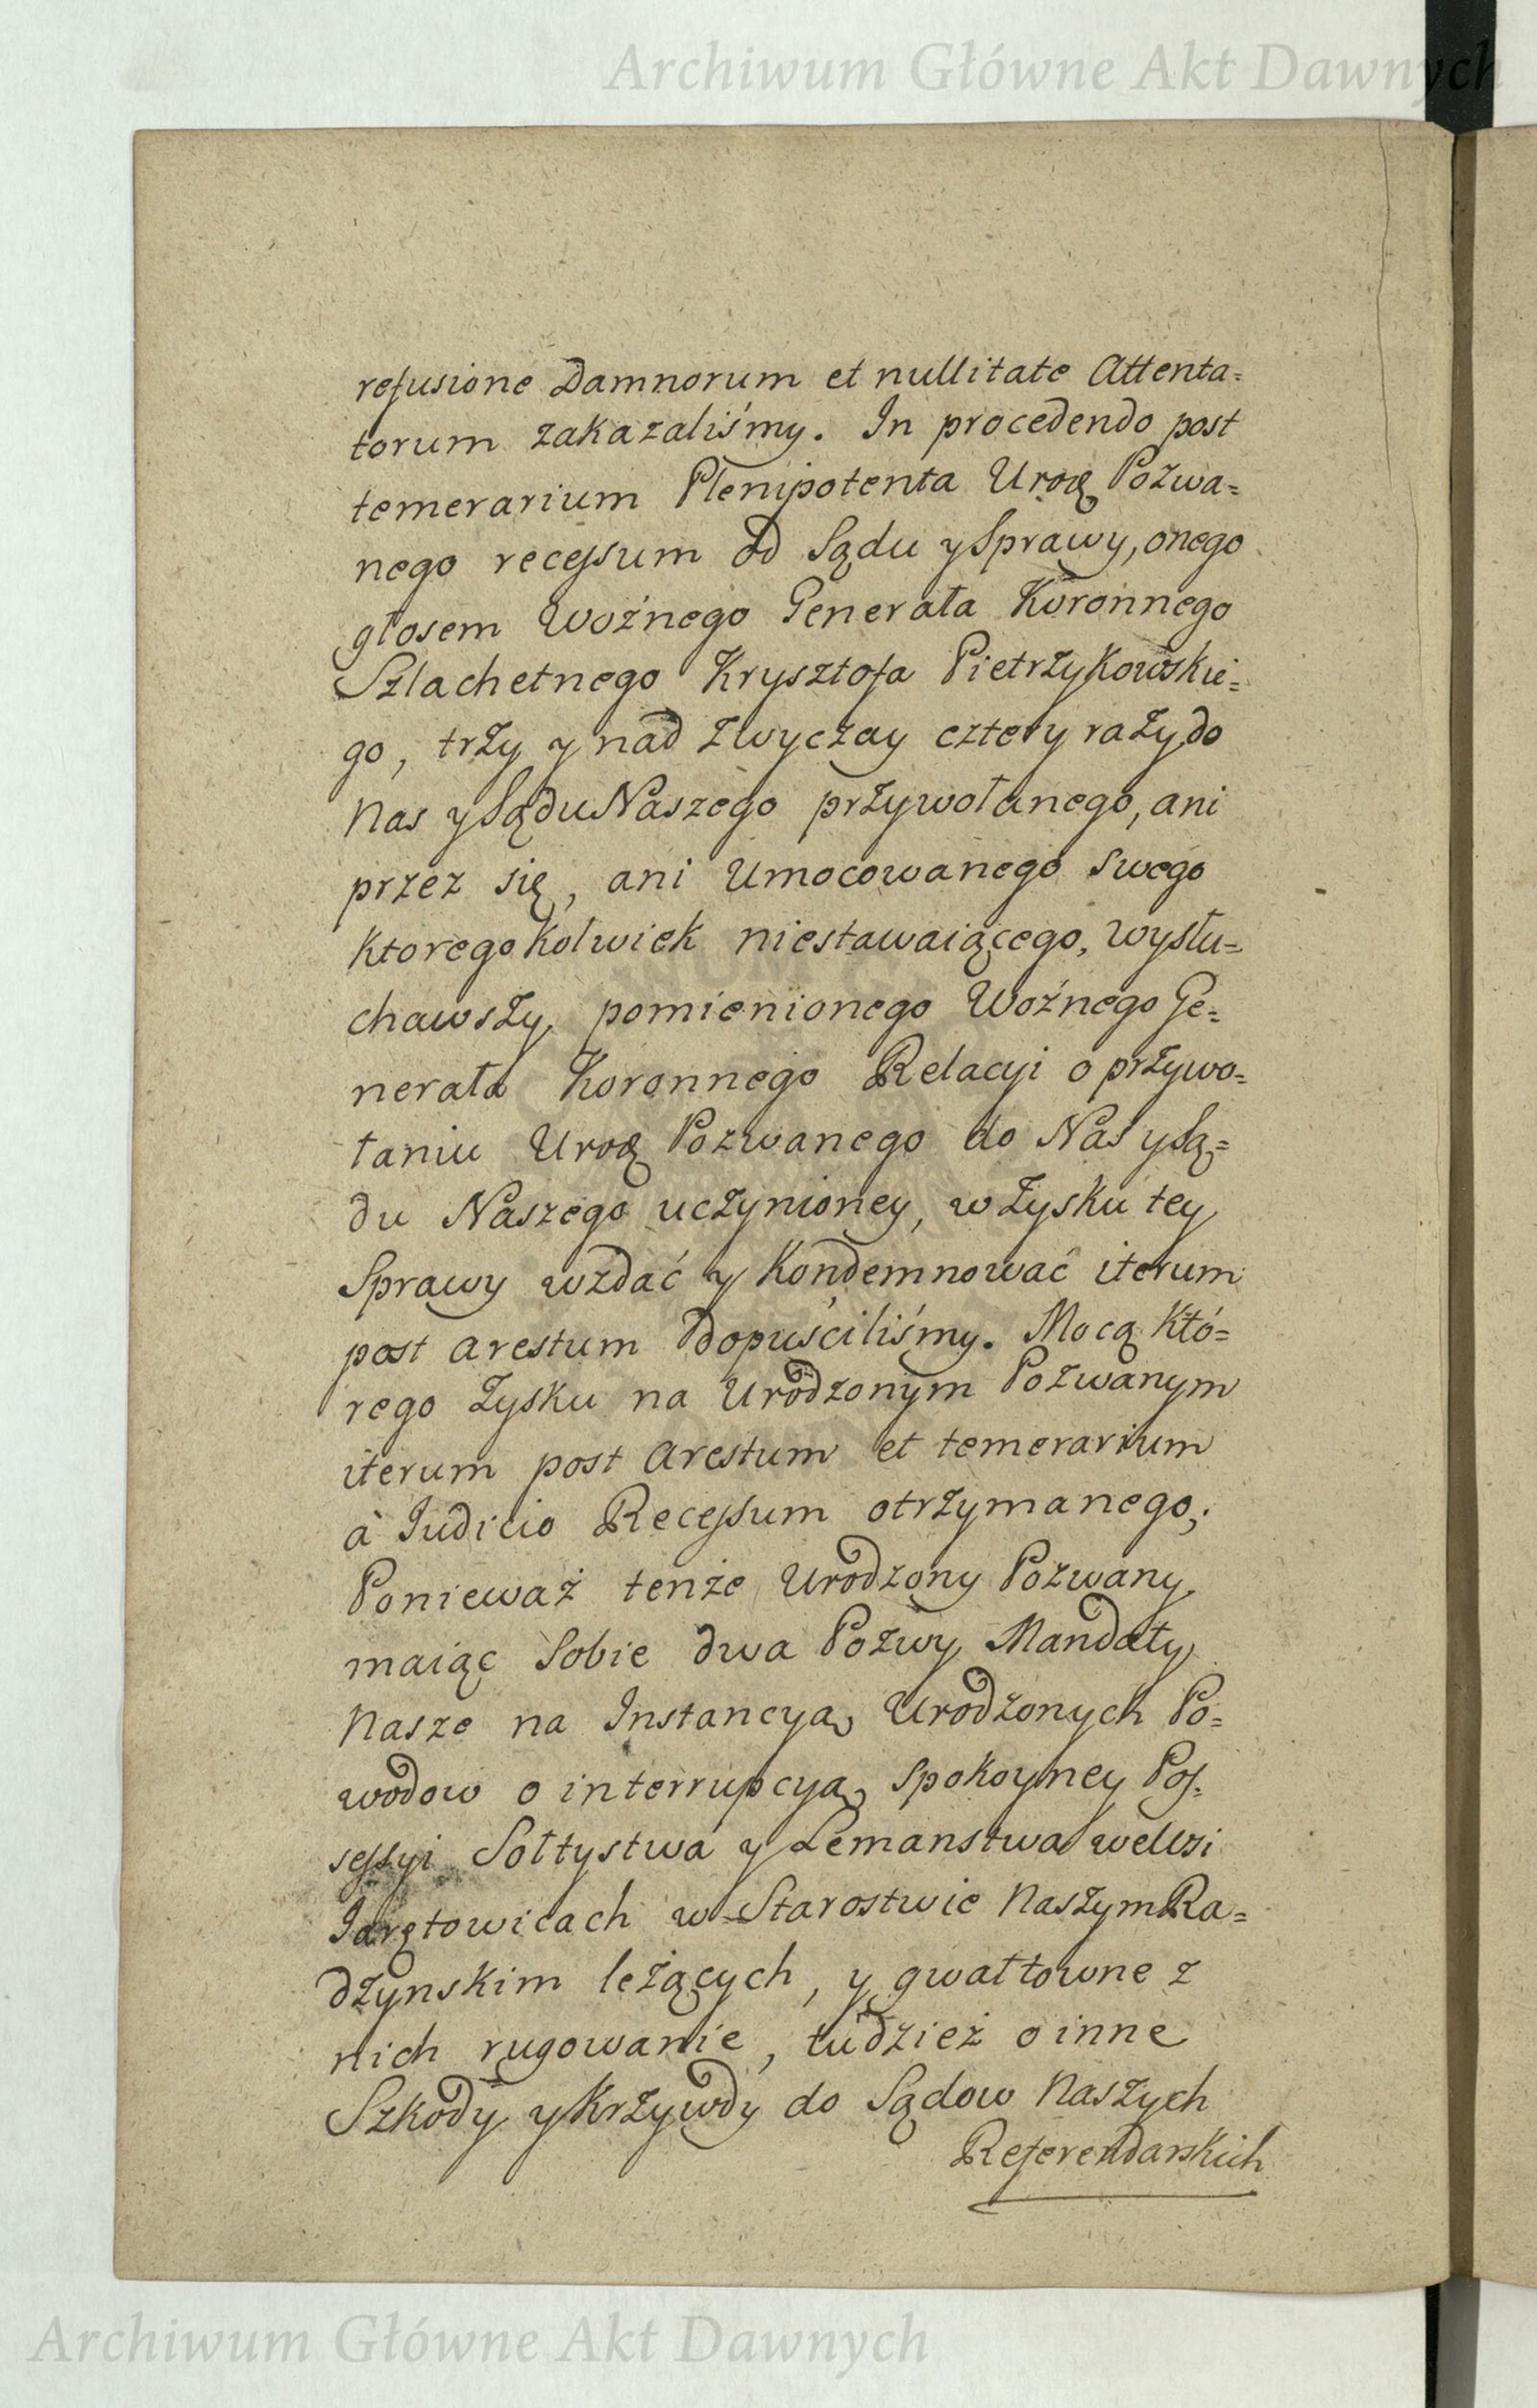 Archiwum Główne Akt Dawnych
refusione Damnorum et nullitate Attenta=
torum zakazaliśmy. In procedendo post
temerarium Plenipotenta Uroę Pozwa=
nego recessum od Sądu y Sprawy, onego
głosem Woźnego Generała Koronnego
Szlachetnego Krysztofa Pietrzykowskie=
go, trzy y nad zwyczay cztery razy do
Nas y Sądu Naszego przywołanego, ani
przez się, ani Umocowanego swego
ktorego kolwiek niestawaiącego, wysłu=
chawszy pomienionego Woźnego Ge=
nerała Koronnego Relacyi o przywo=
łaniu Uroę Pozwanego do Nas y Są=
du Naszego uczynioney, w zysku tey
Sprawy wzdać y Kondemnować iterum
post arestum dopuściliśmy. Mocą któ=
rego zysku na Urodzonym Pozwanym
iterum post arestum et temerarium
à Iudicio Recessum otrzymanego;
Ponieważ tenże Urodzony Pozwany
maiąc Sobie dwa Pozwy Mandaty
Nasze na Instancyą Urodzonych Po=
wodow o interrupcyą spokoyney Pos=
sessyi Sołtystwa y Lemanstwa we Wsi
w Starostwie Naszym Ra=
dzynskim leżących, y gwałtowne z
nich rugowanie, tudzież o inne
Szkody y Krzywdy do Sądow Naszych
Referendarskich
Archiwum Główne Akt Dawnych